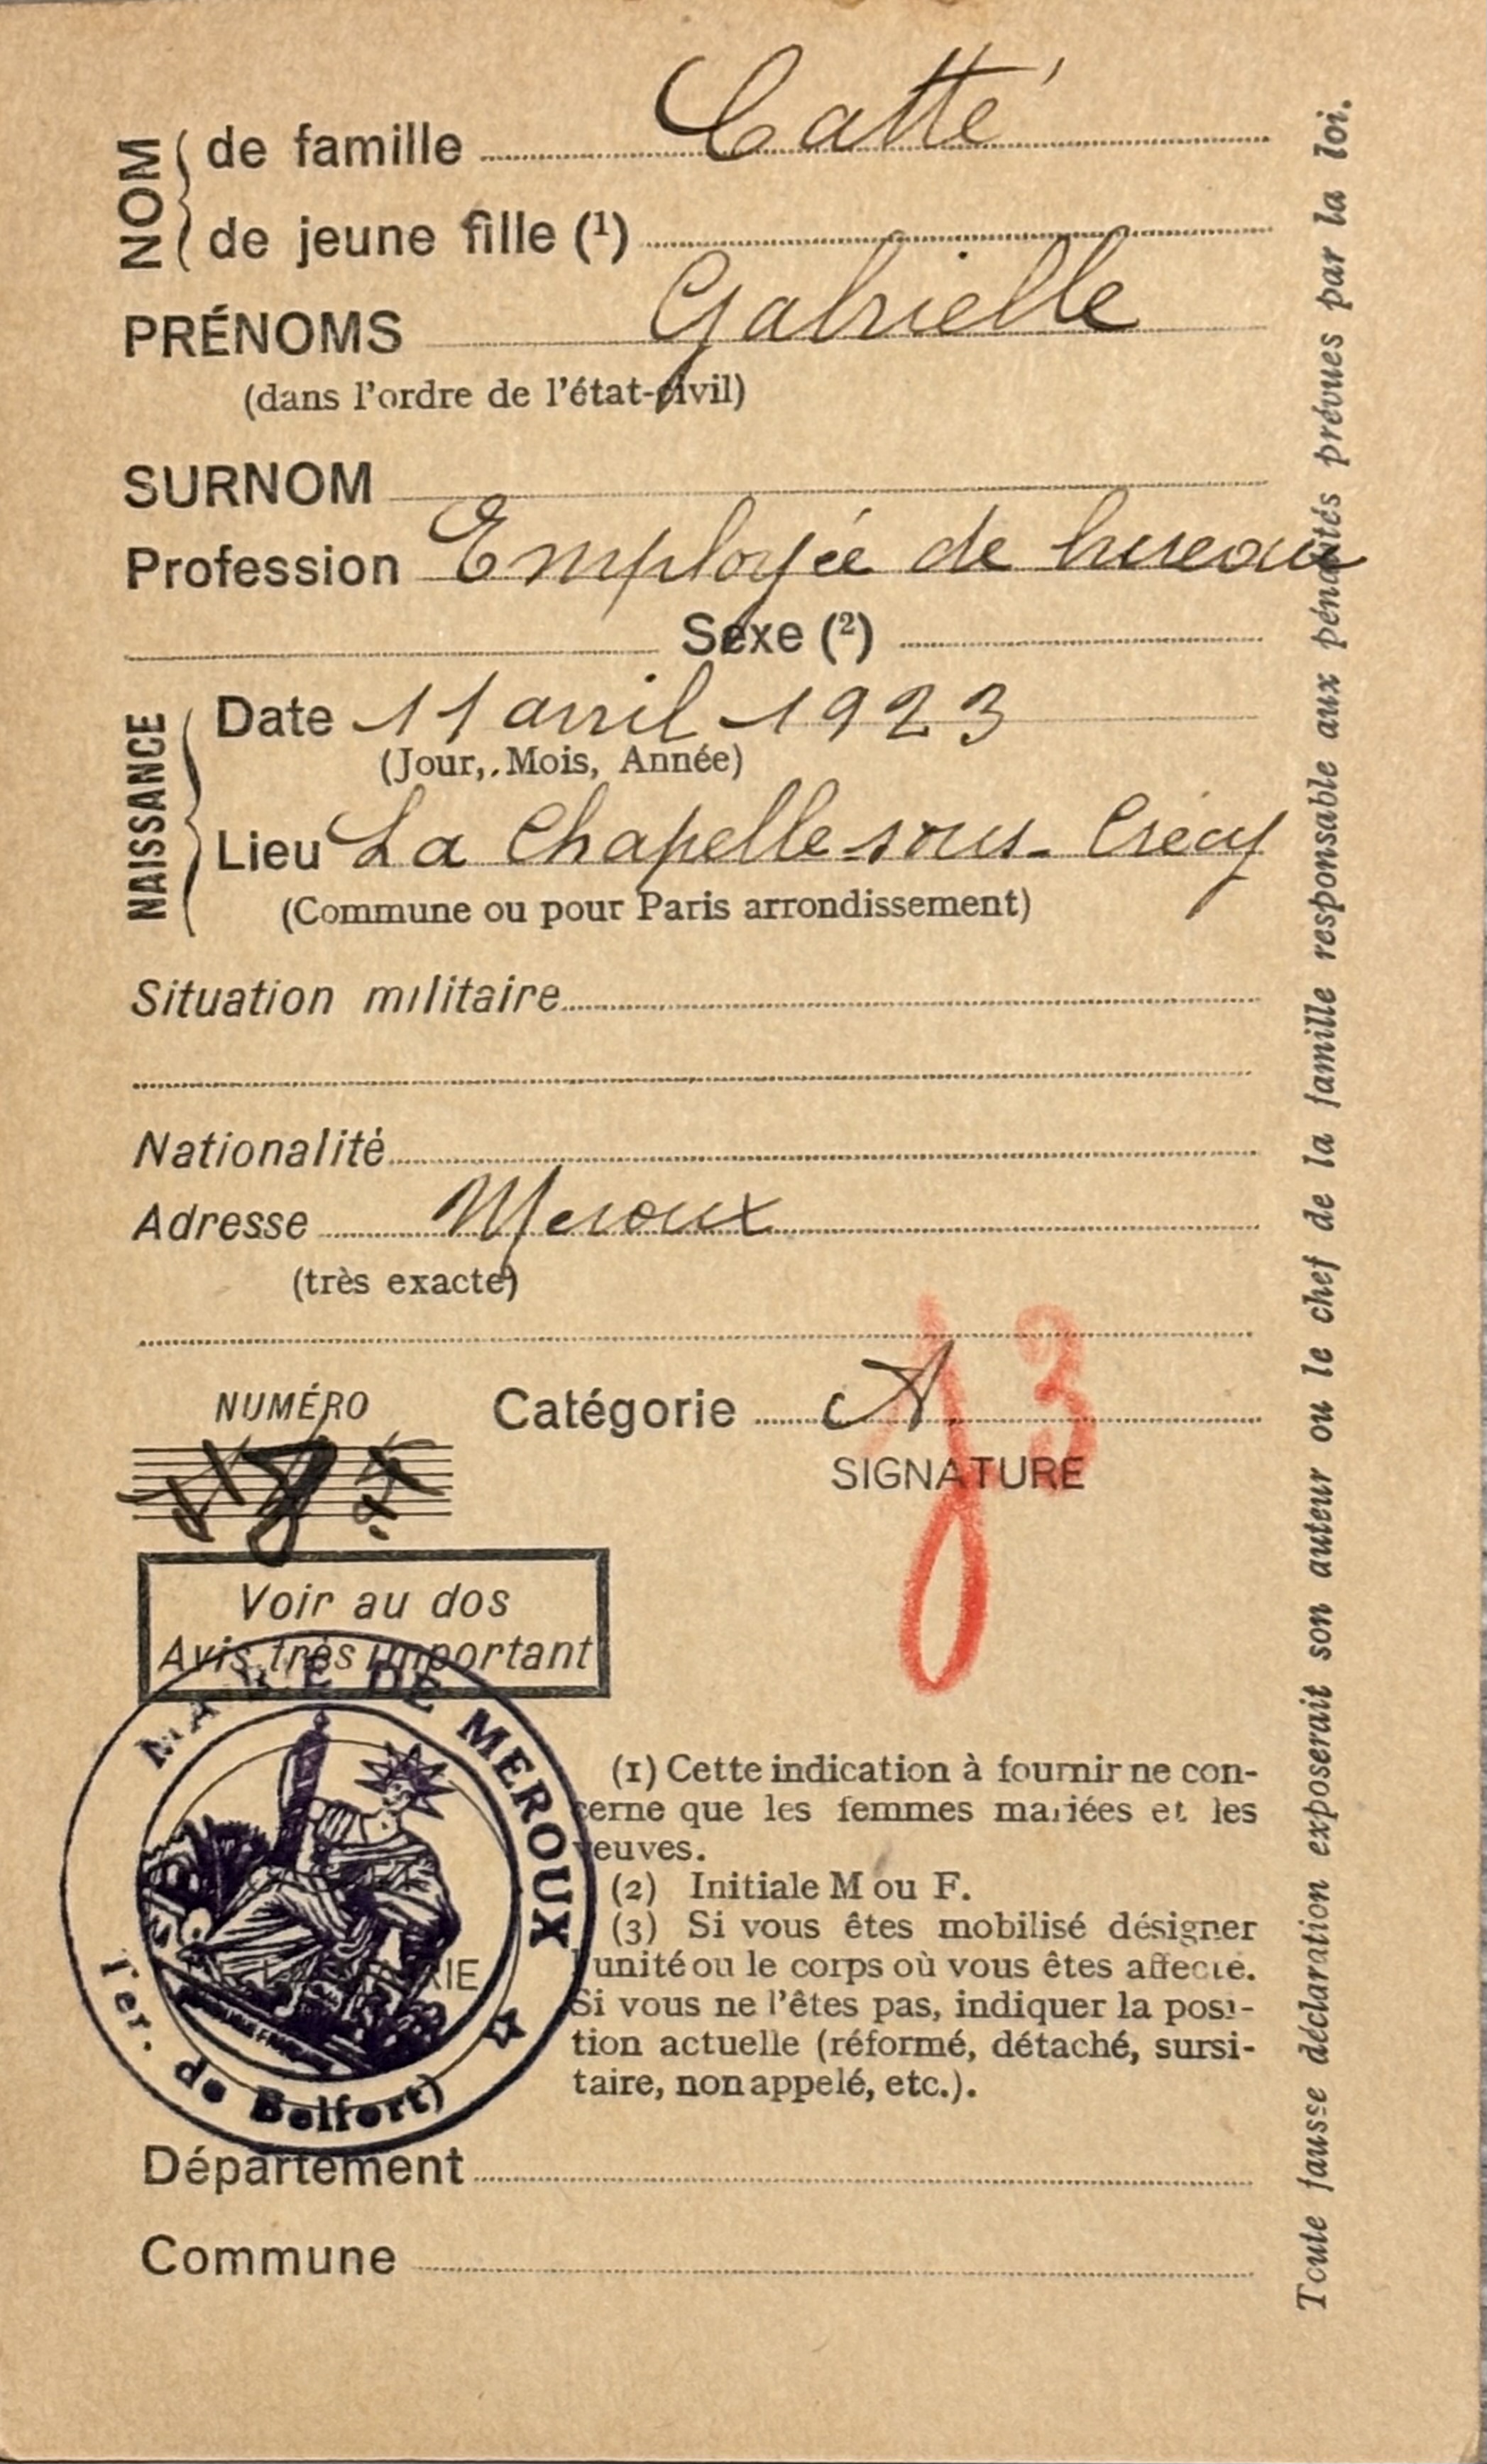 NOM
de famille Catté
de jeune fille (1)
PRÉNOMS Gabrielle
(dans l'ordre de l'état-civil)
SURNOM
Profession Employée de bureau
Sexe (2)
NAISSANCE
Date 11 avril 1923
(Jour, Mois, Année)
Lieu La Chapelle-sous-Crécy
(Commune ou pour Paris arrondissement)
Situation militaire
Nationalité
Adresse Meroux
(très exacte)
NUMÉRO
Catégorie A
J3
SIGNATURE
Voir au dos
Avis très important
MAIRIE DE MEROUX
Ter. de Belfort)
(1) Cette indication à fournir ne con-
cerne que les femmes mariées et les
veuves.
(2) Initiale M ou F.
(3) Si vous êtes mobilisé désigner
l'unité ou le corps où vous êtes affecté.
Si vous ne l'êtes pas, indiquer la posi-
tion actuelle (réformé, détaché, sursi-
taire, non appelé, etc.).
Département
Commune
Toute fausse déclaration exposerait son auteur ou le chef de la famille responsable aux pénalités prévues par la loi.